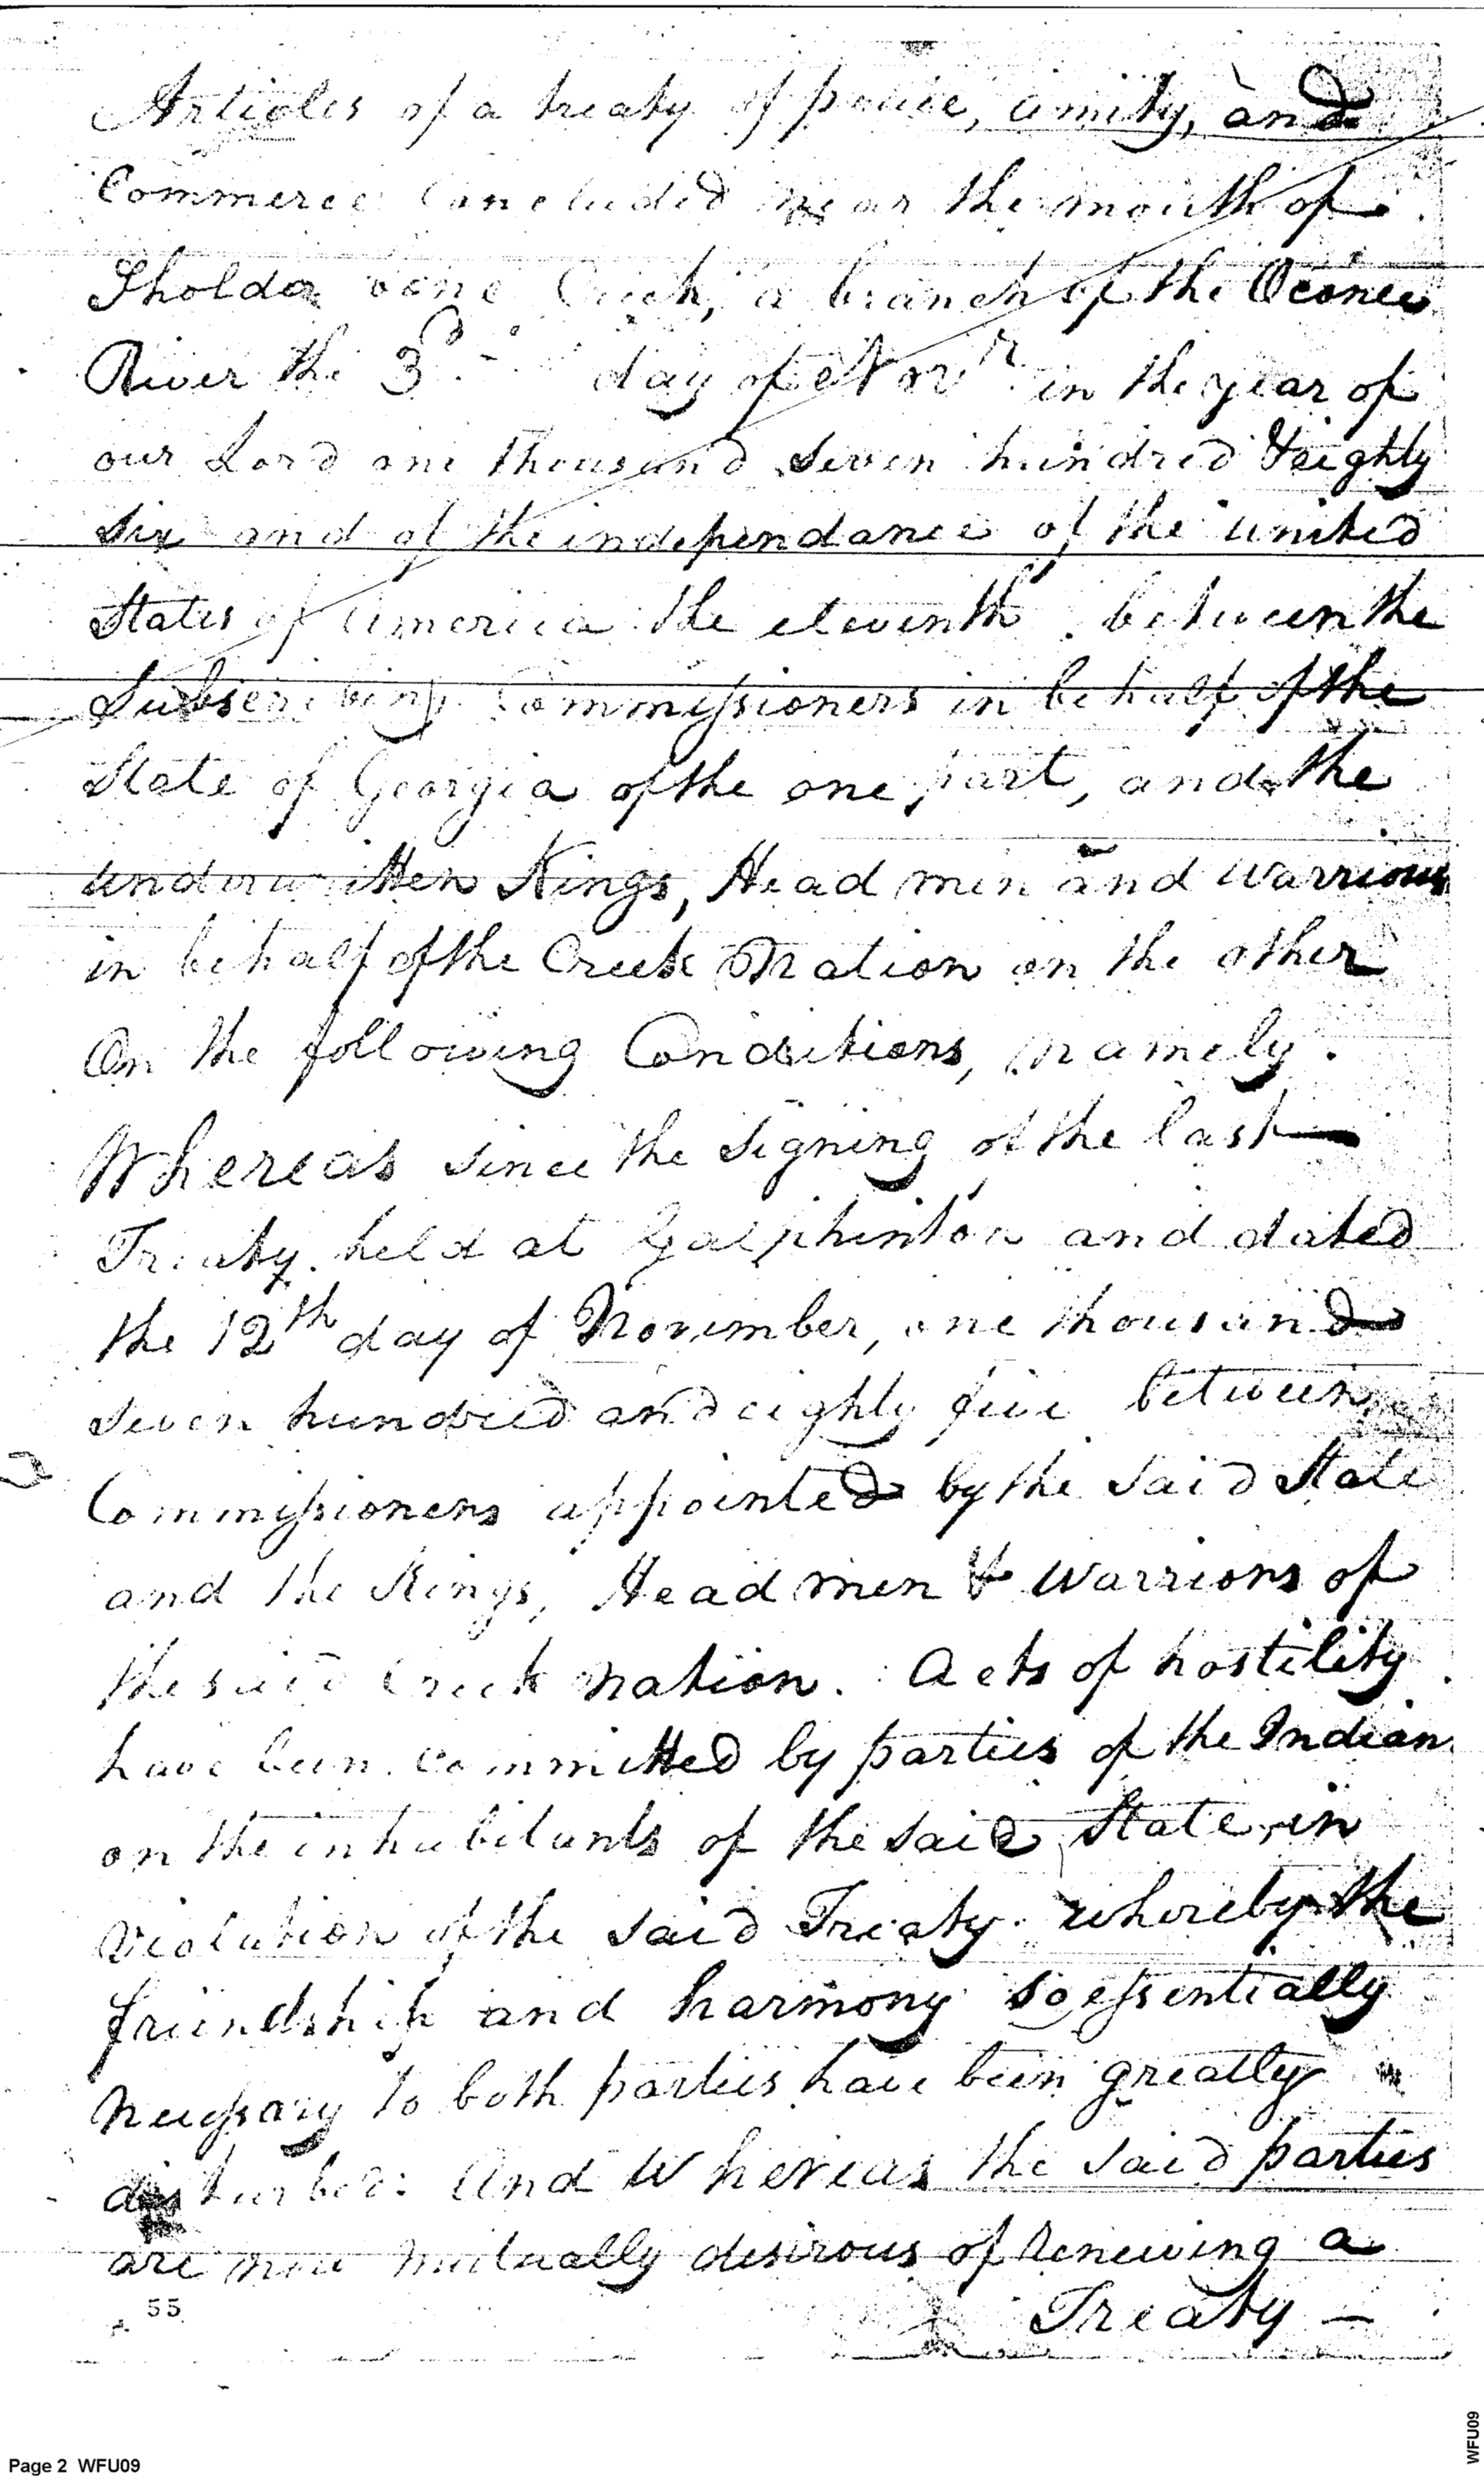 Articles of a treaty of peace, amity, and
Commerce Concluded near the mouth of
Sholder bone Creek, a branch of the Oconee
River the 3d day of Novr in the year of
our Lord one thousand seven hundred & eighty
six and of the independance of the united
States of America the eleventh between the
Subscribing Commissioners in behalf of the
State of Georgia of the one part, and the
underwritten Kings, Head men and warriors
in behalf of the Creek Nation on the other
On the following Conditions, namely.
Whereas since the signing of the last
Treaty held at Galphinton and dated
the 12th day of November, one thousand
seven hundred and eighty five between
Commissioners appointed by the said State
and the Kings, Head men & warriors of
the said Creek nation. Acts of hostility
have been committed by parties of the Indian
on the inhabitants of the said State in
violation of the said Treaty whereby the
friendship and harmony so essentially
necessary to both parties have been greatly
disturbed: And Whereas the said parties
are now mutually desirous of renewing a
55
Treaty —
Page 2 WFU09
WFU09